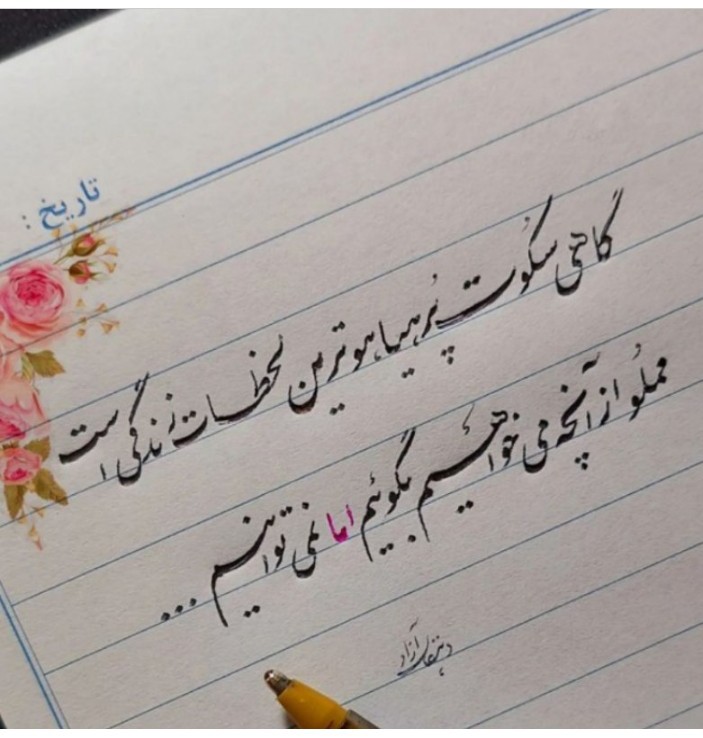 تاریخ :
گاهی سکوت پُر هیاهو ترین لحظات زندگی است
مملُو از آنچه می خواهیم بگوئیم اما نمی توانیم ...
دهقان آزاد